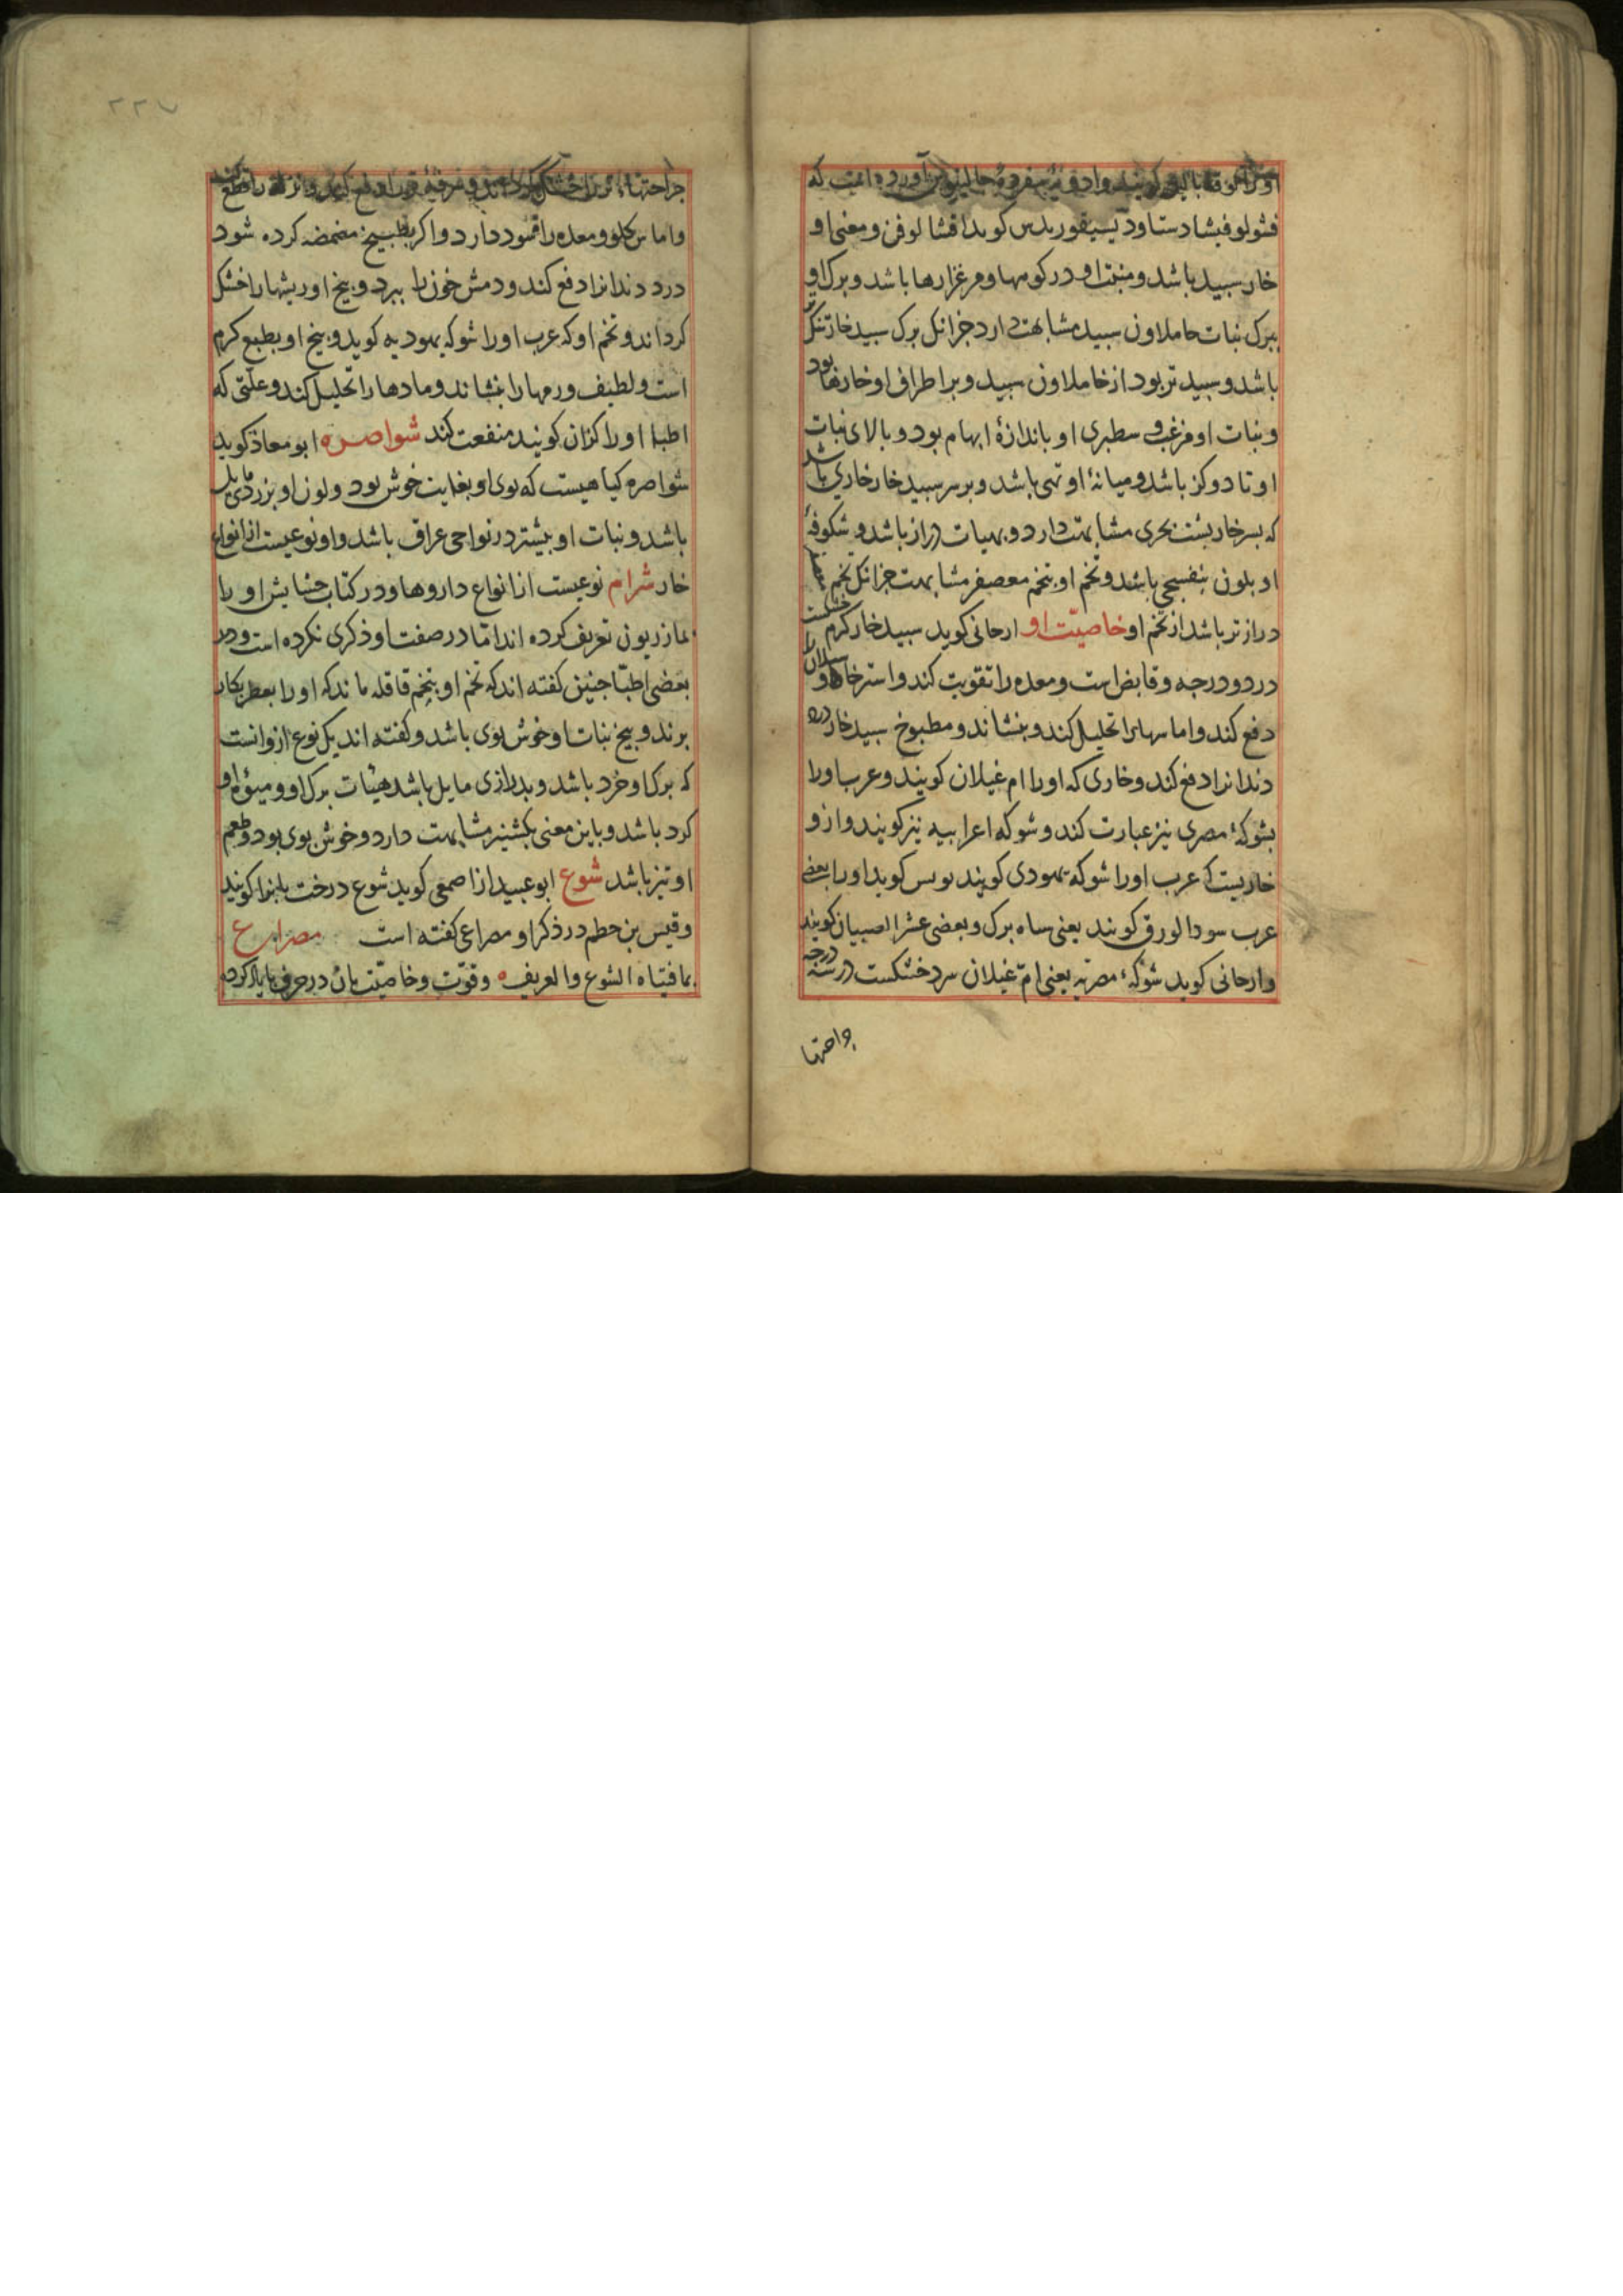 اورا لوقا گویند و ادویهٔ مفردهٔ جالینوس آورده است که
فثولوفیشاد ستاودیسیقوریدس کوید اقشالوفن و معنی او
خار سبید باشد و منبت او در کوهها و مرغزارها باشد و برک او
ببرک نبات حاملاون سبید مشابهت دارد جزانک برک سبید خار تنکتر
باشد و سبید تر بود از خاملاون سبید و بر اطراف او خارها بود
و نبات او مزغب و سطبری او باندازهٔ ابهام بود و بالای نبات
او تا دو کز باشد و میانهٔ او تهی باشد و بر سر سبید خار خاری باشد
که بسر خار بشت بحری مشابهت دارد و بهیات دراز باشد و شکوفهٔ
او بلون بنفسجی باشد و تخم او بتخم معصفر مشابهت جزانک تخم معصفر
دراز تر باشد از تخم او خاصیّت او ارحانی کوید سبید خار کرم خشکست
در دو درجه و قابض است و معده را تقویت کند و استرخا و سیلان را
دفع کند و اماسها را تحلیل کند و بنشاند و مطبوخ سبید خار درد
دندانرا دفع کند و خاری که اورا ام غیلان کویند و عرب اورا
بشوکهٔ مصری نیز عبارت کند و شوکه اعرابیه نیز کویند و ازو
خاریست که عرب اورا شوکه یهودی کویند بولس کوید اورا بعضی
عرب سودا لورق کویند یعنی ساه برک و بعضی عشرا لصبیان کویند
و ارحانی کوید شوکهٔ مصریه یعنی امّ غیلان سرد خشکست در سه درجه
جراحتها
جراحتها تر را خشک کرداند و را دفع کند و نزله را قطع کند
و اماس کلو و معده را سود دارد و اکر بطبیخ مضمضه کرده شود
درد دندانرا دفع کند و دمش خون را ببرد و بیخ او ریشها را خشک
کرداند و تخم او که عرب اورا شوکه یهودیه کوید و بیخ او بطبع کرم
است و لطیف ورمها را بنشاند و مادها را تحلیل کند و علتی که
اطبا اورا کزان کویند منفعت کند شواصره ابو معاذ کوید
شواصره کیاهیست که بوی او بغایت خوش بود و لون او بزردی مایل
باشد و نبات او بیشتر در نواحی عراق باشد و او نوعیست از انواع
خار شرام نوعیست از انواع داروها و در کتاب حشایش اورا
بمازریون تعریف کرده اند امّا در صفت او ذکری نکرده است و در
بعضی اطبّا جنین کفته اند که تخم او بتخم قاقله ماند که اورا بعطر بکار
برند و بیخ نبات او خوش بوی باشد و کفته اند یک نوع ازو انست
که برک او خرد باشد و بدرازی مایل باشد هیئات برک او و میوهٔ او
کرد باشد و باین معنی بکشنیز مشابهت دارد و خوش بوی بود و طعم
او تیز باشد شوع ابو عبید از اصمعی کوید شوع درخت بانرا کویند
و قیس بن حطم در ذکر او مصراعی کفته است مصراع
بمافتیاه الشوع والغریف و قوّت و خاصیّت بان در حرف با یاد کرده
۲۲۷